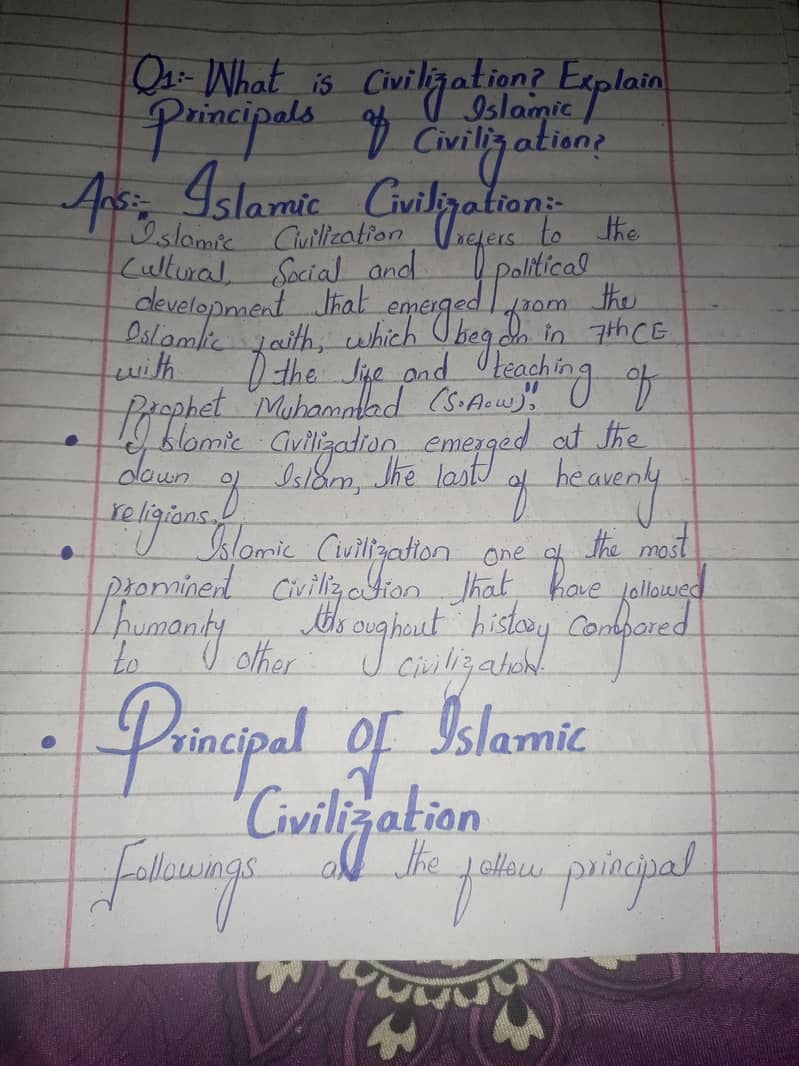 Q1:- What is Civilization? Explain
Principals of Islamic
Civilization?
Ans:- Islamic Civilization:-
Islamic Civilization refers to the
Cultural, Social and political
development that emerged from the
Islamic faith, which began in 7th CE
with the life and teaching of
Prophet Muhammad (S.A.W)".
• Islamic Civilization emerged at the
dawn of Islam, the last of heavenly
religions.
• Islamic Civilization one of the most
prominent Civilization that have followed
humanity throughout history Compared
to other civilization.
• Principal of Islamic
Civilization
Followings are the follow principal